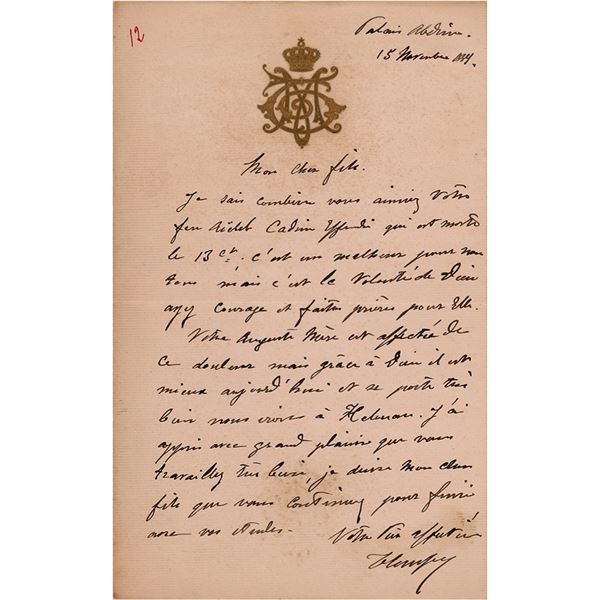 12
Palais Abdine.
15 Novembre 1884.
Mon cher fils.
Je sais combien vous aimiez Votre
feu Cadine Effendi qui est morte
le 13 ct. c'est un malheur pour nous
tous mais c'est la Volonté de Dieu
ayez courage et faites prières pour Elle.
Votre Auguste Mère est affectée de
ce douleur mais grâce à Dieu il est
mieux aujourd'hui et se porte très
bien nous irons à Helouan. J'ai
appris avec grand plaisir que vous
travaillez très bien, je desire Mon cher
fils que vous continuez pour finir
vos études.
Votre Père affectionné